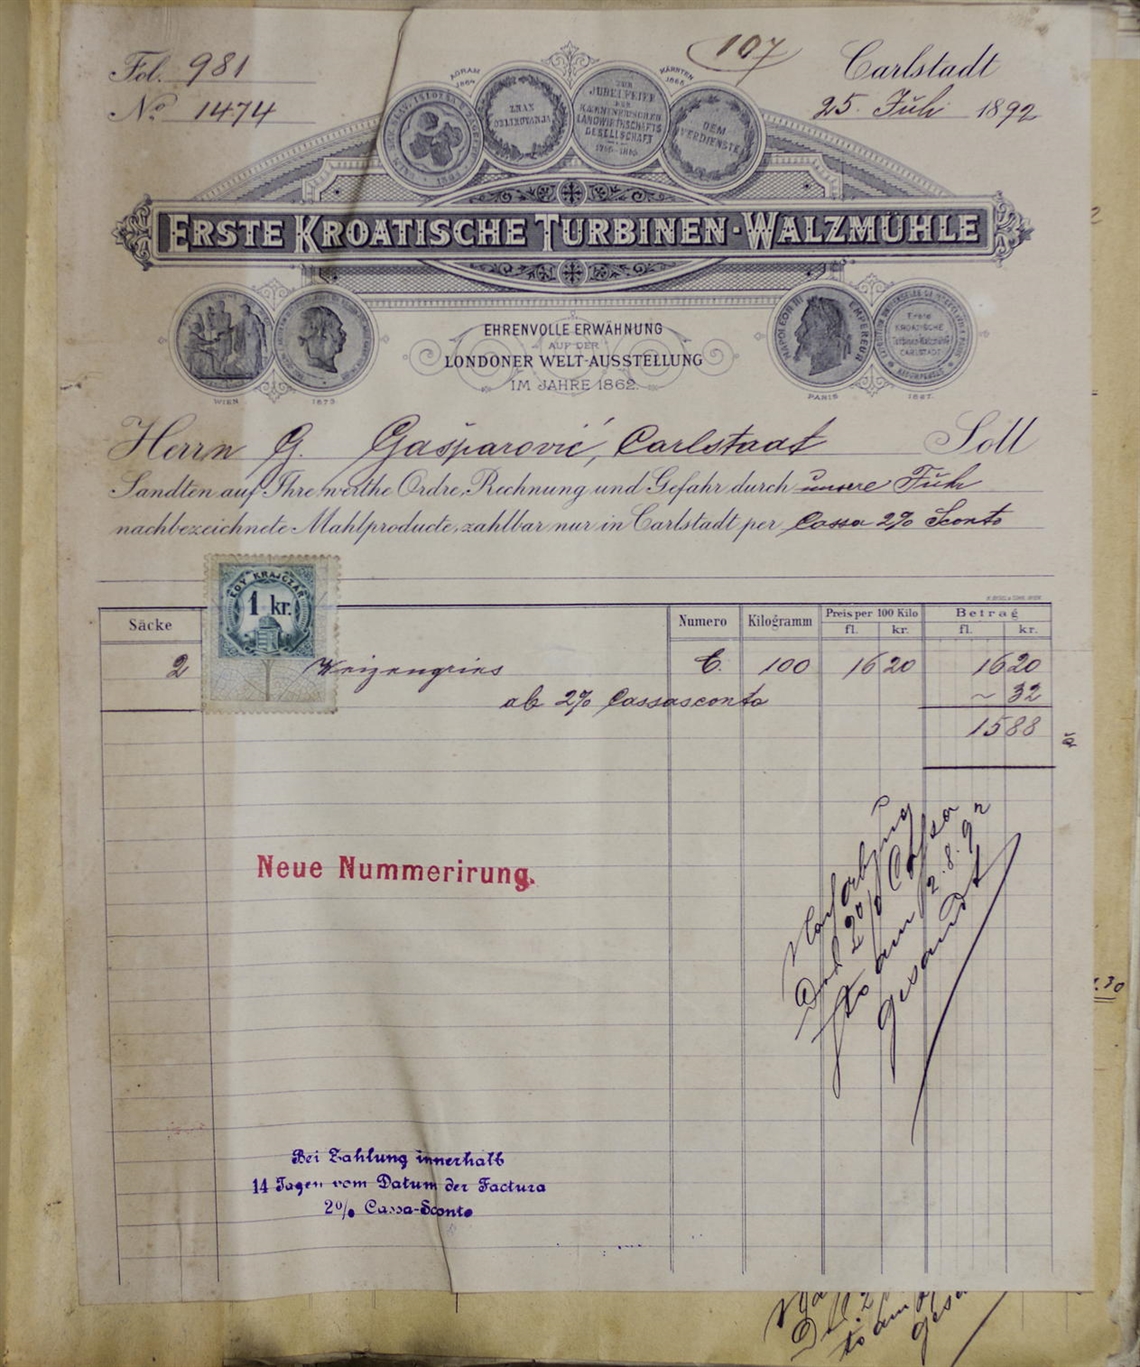 Fol. 981
107
Carlstadt
No 1474
25. Juli 1892
AGRAM 1864
KÄRNTEN 1865
ZNAK ODLIKOVANJA
ZUR JUBELFEIER DER KÄRNTNERISCHEN LANDWIRTHSCHAFTS GESELLSCHAFT
DEM VERDIENSTE
ERSTE KROATISCHE TURBINEN-WALZMÜHLE
EHRENVOLLE ERWÄHNUNG
AUF DER
LONDONER WELT-AUSSTELLUNG
IM JAHRE 1862.
NAPOLEON III EMPEREUR
Erste KROATISCHE Turbinen-Walzmühle CARLSTADT
WIEN 1873
PARIS 1867
Herrn G. Gašparović, Carlstadt Soll
Sandten auf Ihre werthe Ordre, Rechnung und Gefahr durch unsere Fuh
nachbezeichnete Mahlproducte, zahlbar nur in Carlstadt per Cassa 2% Sconto
EGY KRAJCZÁR
1 kr.
Säcke Numero Kilogramm Preis per 100 Kilo Betrag
fl. kr. fl. kr.
2 Weizengries C. 100 16 20 16 20
ab 2% Cassasconto ~ 32
15 88
Neue Nummerirung.
2% Cassa
am 2.8.92
gesandt
Bei Zahlung innerhalb
14 Tagen vom Datum der Factura
2% Cassa-Sconto